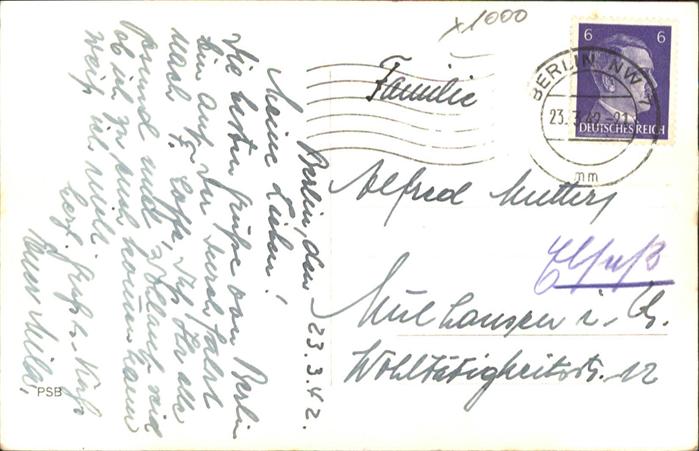 x1000
6 6
DEUTSCHES REICH
BERLIN NW 7
23.3.42-21
mm
Berlin, den 23.3.42.
Meine Lieben!
Die besten Grüße von Berlin
bin auf der Durchfahrt
nach F. Hoffe, Ihr alle
gesund und wohlauf seid
ob ich zu euch kommen kann
weiß ich nicht.
herzl. Grüße Kuss
PSB
Familie
Alfred
Elsaß
Mülhausen i. E.
Wohltätigkeitsstr. 12